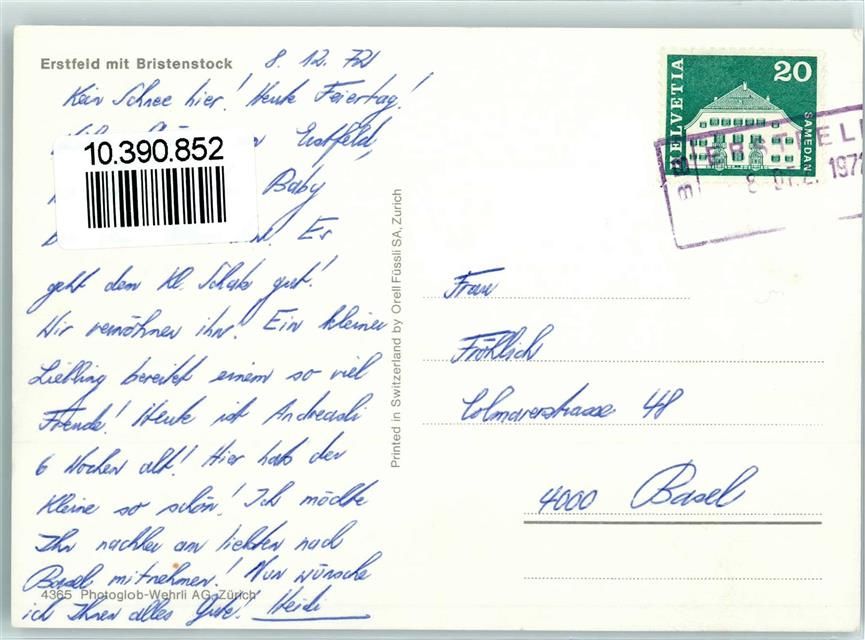 Erstfeld mit Bristenstock
8. 12. 72
Kein Schnee hier! Heute Feiertag!
Erstfeld,
10.390.852
Baby
Er
geht dem Kl. Schatz gut!
Wir verwöhnen ihn! Ein kleiner
Liebling bereitet einem so viel
Freude! Heute ist Andreasli
6 Wochen alt! Hier hats der
Kleine so schön! Ich möchte
Ihn nachher am liebsten nach
Basel mitnehmen! Nun wünsche
ich Ihnen alles Gute! Heidi
4365 Photoglob-Wehrli AG, Zürich
Printed in Switzerland by Orell Füssli SA, Zurich
HELVETIA
20
SAMEDAN
ERSTFELD
1972
Frau
Fröhlich
Colmarerstrasse 48
4000 Basel